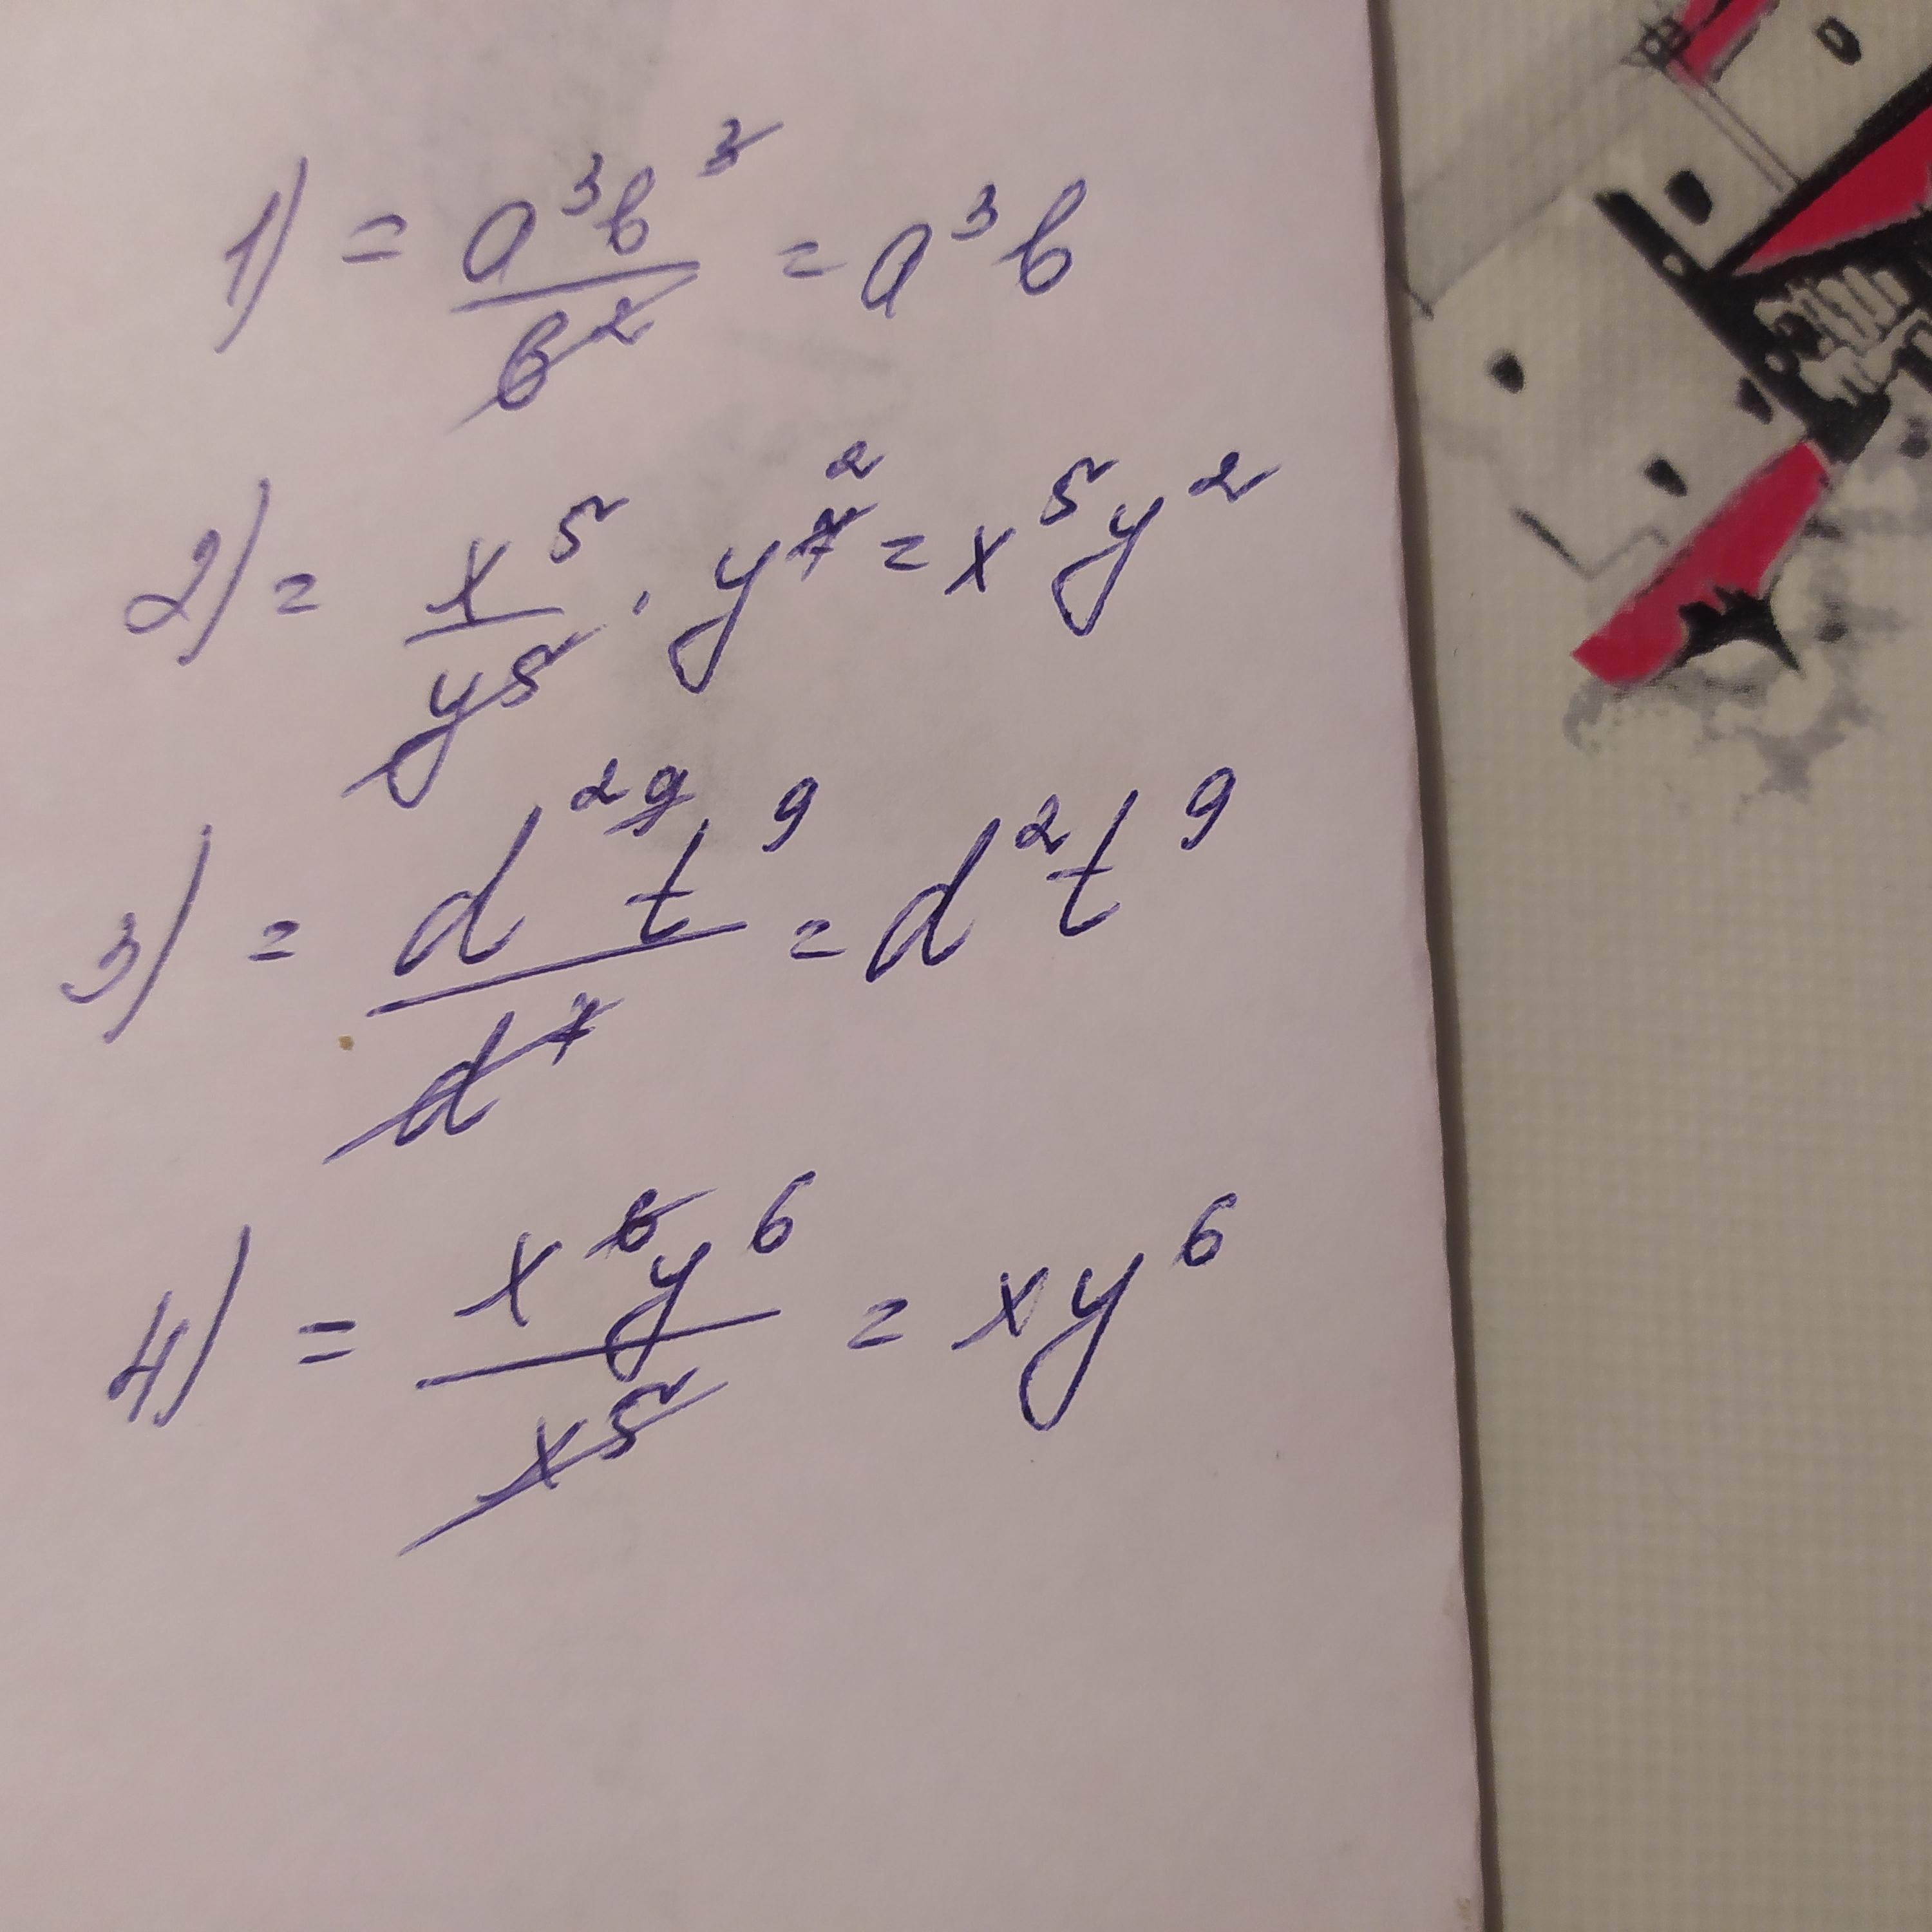 1) = a³b³/b² = a³b
2) = x⁵/y⁵ · y⁷ ² = x⁵y²
3) = d² ⁹t⁹/d⁷ = d²t⁹
4) = x⁶y⁶/x⁵ = xy⁶